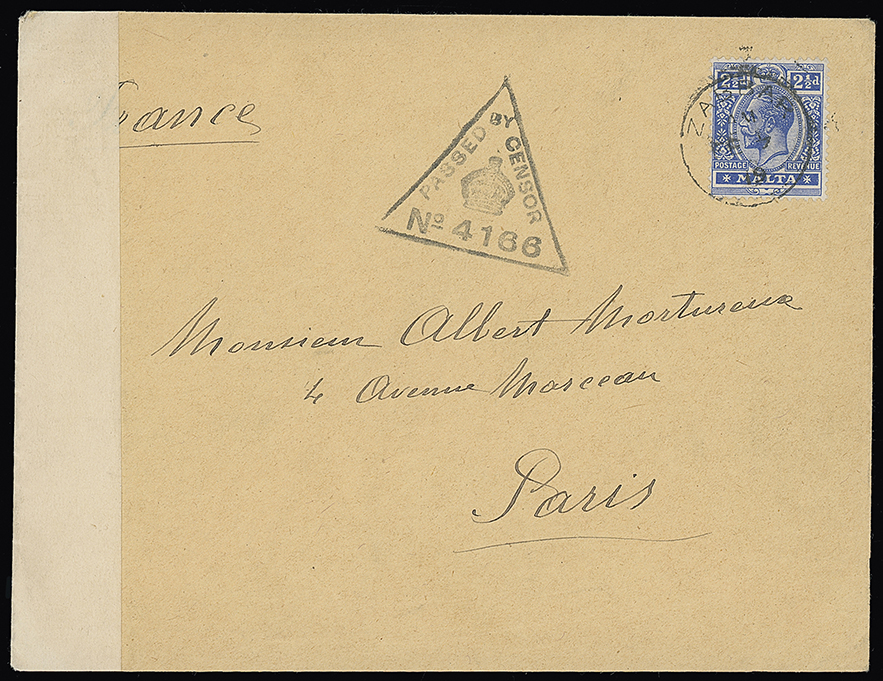 France
PASSED BY CENSOR
No 4166
2½d 2½d
POSTAGE REVENUE
MALTA
ZABBAR
Monsieur Albert Mortureux
4 Avenue Marceau
Paris